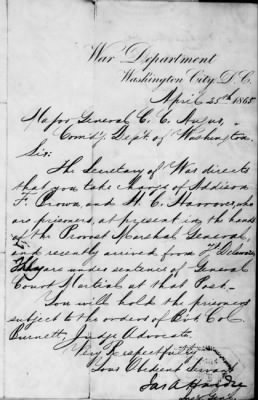 War Department
Washington City, D.C.
April 25th 1865
Major General C. C. Augur,
Comd'g Dept. of Washington.
Sir:
The Secretary of War directs
that you take charge of Addison
F. Brown, and H. C.
who
are prisoners, at present in the hands
of the Provost Marshal General,
and recently arrived from Ft Delaware,
They are under sentence of General
Court Martial at that Post.
You will hold the prisoners
subject to the orders of Bvt. Col.
Burnett, Judge Advocate.
Very Respectfully
Your Obedient Servant
Jas A Hardie